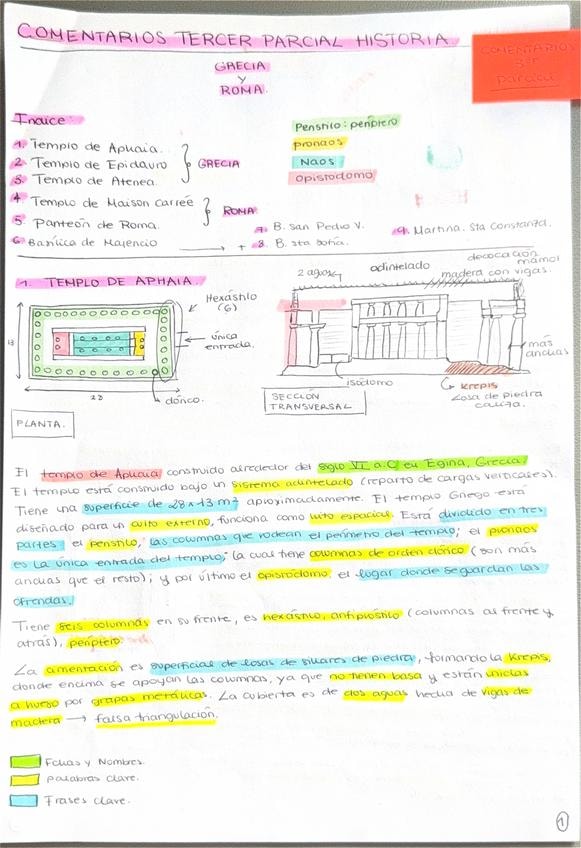 COMENTARIOS TERCER PARCIAL HISTORIA
COMENTARIOS
3er
parcial
GRECIA
Y
ROMA.
Indice:
1. Templo de Aphaia.
2. Templo de Epidauro
3. Templo de Atenea.
GRECIA
4. Templo de Maison Carreé
5. Panteón de Roma.
ROMA
6. Basílica de Majencio
+
7. B. San Pedro V.
8. B. sta Sofia.
9. Martina. Sta Constanza.
Peristilo: períptero
pronaos
Naos
opistodomo
1. TEMPLO DE APHAIA.
Hexástilo
(6)
única
entrada.
dórico.
28
13
PLANTA.
2 aguas
adintelado
decoración
mármol
madera con vigas.
más
anchas
isódomo
Krepis
Losa de piedra
caliza.
SECCIÓN
TRANSVERSAL
El templo de Aphaia construido alrededor del siglo VI a.C en Egina, Grecia.
El templo está construido bajo un sistema adintelado (reparto de cargas verticales).
Tiene una superficie de 28x13 m² aproximadamente. El templo Griego está
diseñado para un culto externo, funciona como hito espacial. Está dividido en tres
partes: el peristilo, las columnas que rodean el perímetro del templo; el pronaos
es la única entrada del templo, la cual tiene columnas de orden dórico (son más
anchas que el resto); y por último el opistodomo, el lugar donde se guardan las
ofrendas.
Tiene seis columnas en su frente, es hexástilo, anfipróstilo (columnas al frente y
atrás), períptero.
La cimentación es superficial de losas de sillares de piedra, formando la Krepis,
donde encima se apoyan las columnas, ya que no tienen basa y están unidas
a hueso por grapas metálicas. La cubierta es de dos aguas hecha de vigas de
madera → falsa triangulación.
Fechas y Nombres.
Palabras clave.
Frases clave.
1